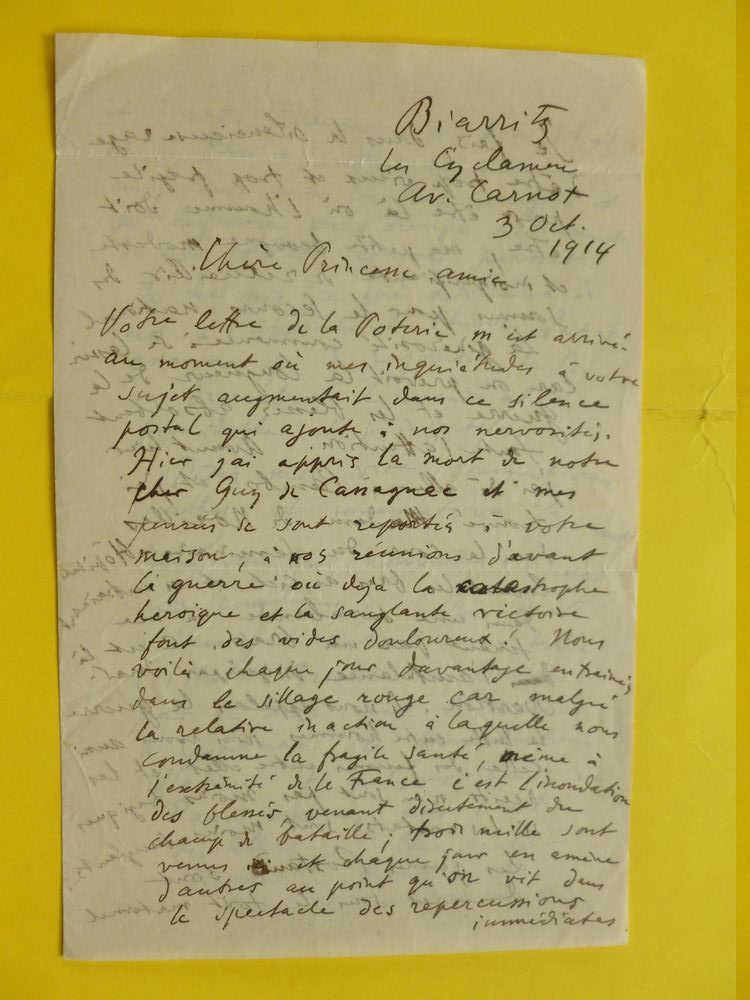 Biarritz
les Cyclamens
Av. Carnot
3 Oct.
1914
Chère Princesse amie
Votre lettre de la Poterie m'est arrivé
au moment où mes inquiétudes à votre
sujet augmentait dans ce silence
postal qui ajoute à nos nervosités.
Hier j'ai appris la mort de notre
cher Guy de Cassagnac et mes
pensées se sont reportés à votre
maison, à nos réunions d'avant
la guerre où deja la catastrophe
heroique et la sanglante victoire
font des vides douloureux! Nous
voilà chaque jour davantage entrainés
dans le sillage rouge car malgré
la relative inaction à laquelle nous
condamne la fragile santé, même à
l'extrémité de la France c'est l'inondation
des blessés, venant directement du
champ de bataille; trois mille sont
venus et chaque jour en amène
d'autres au point qu'on vit dans
le spectacle des repercussions
immédiates